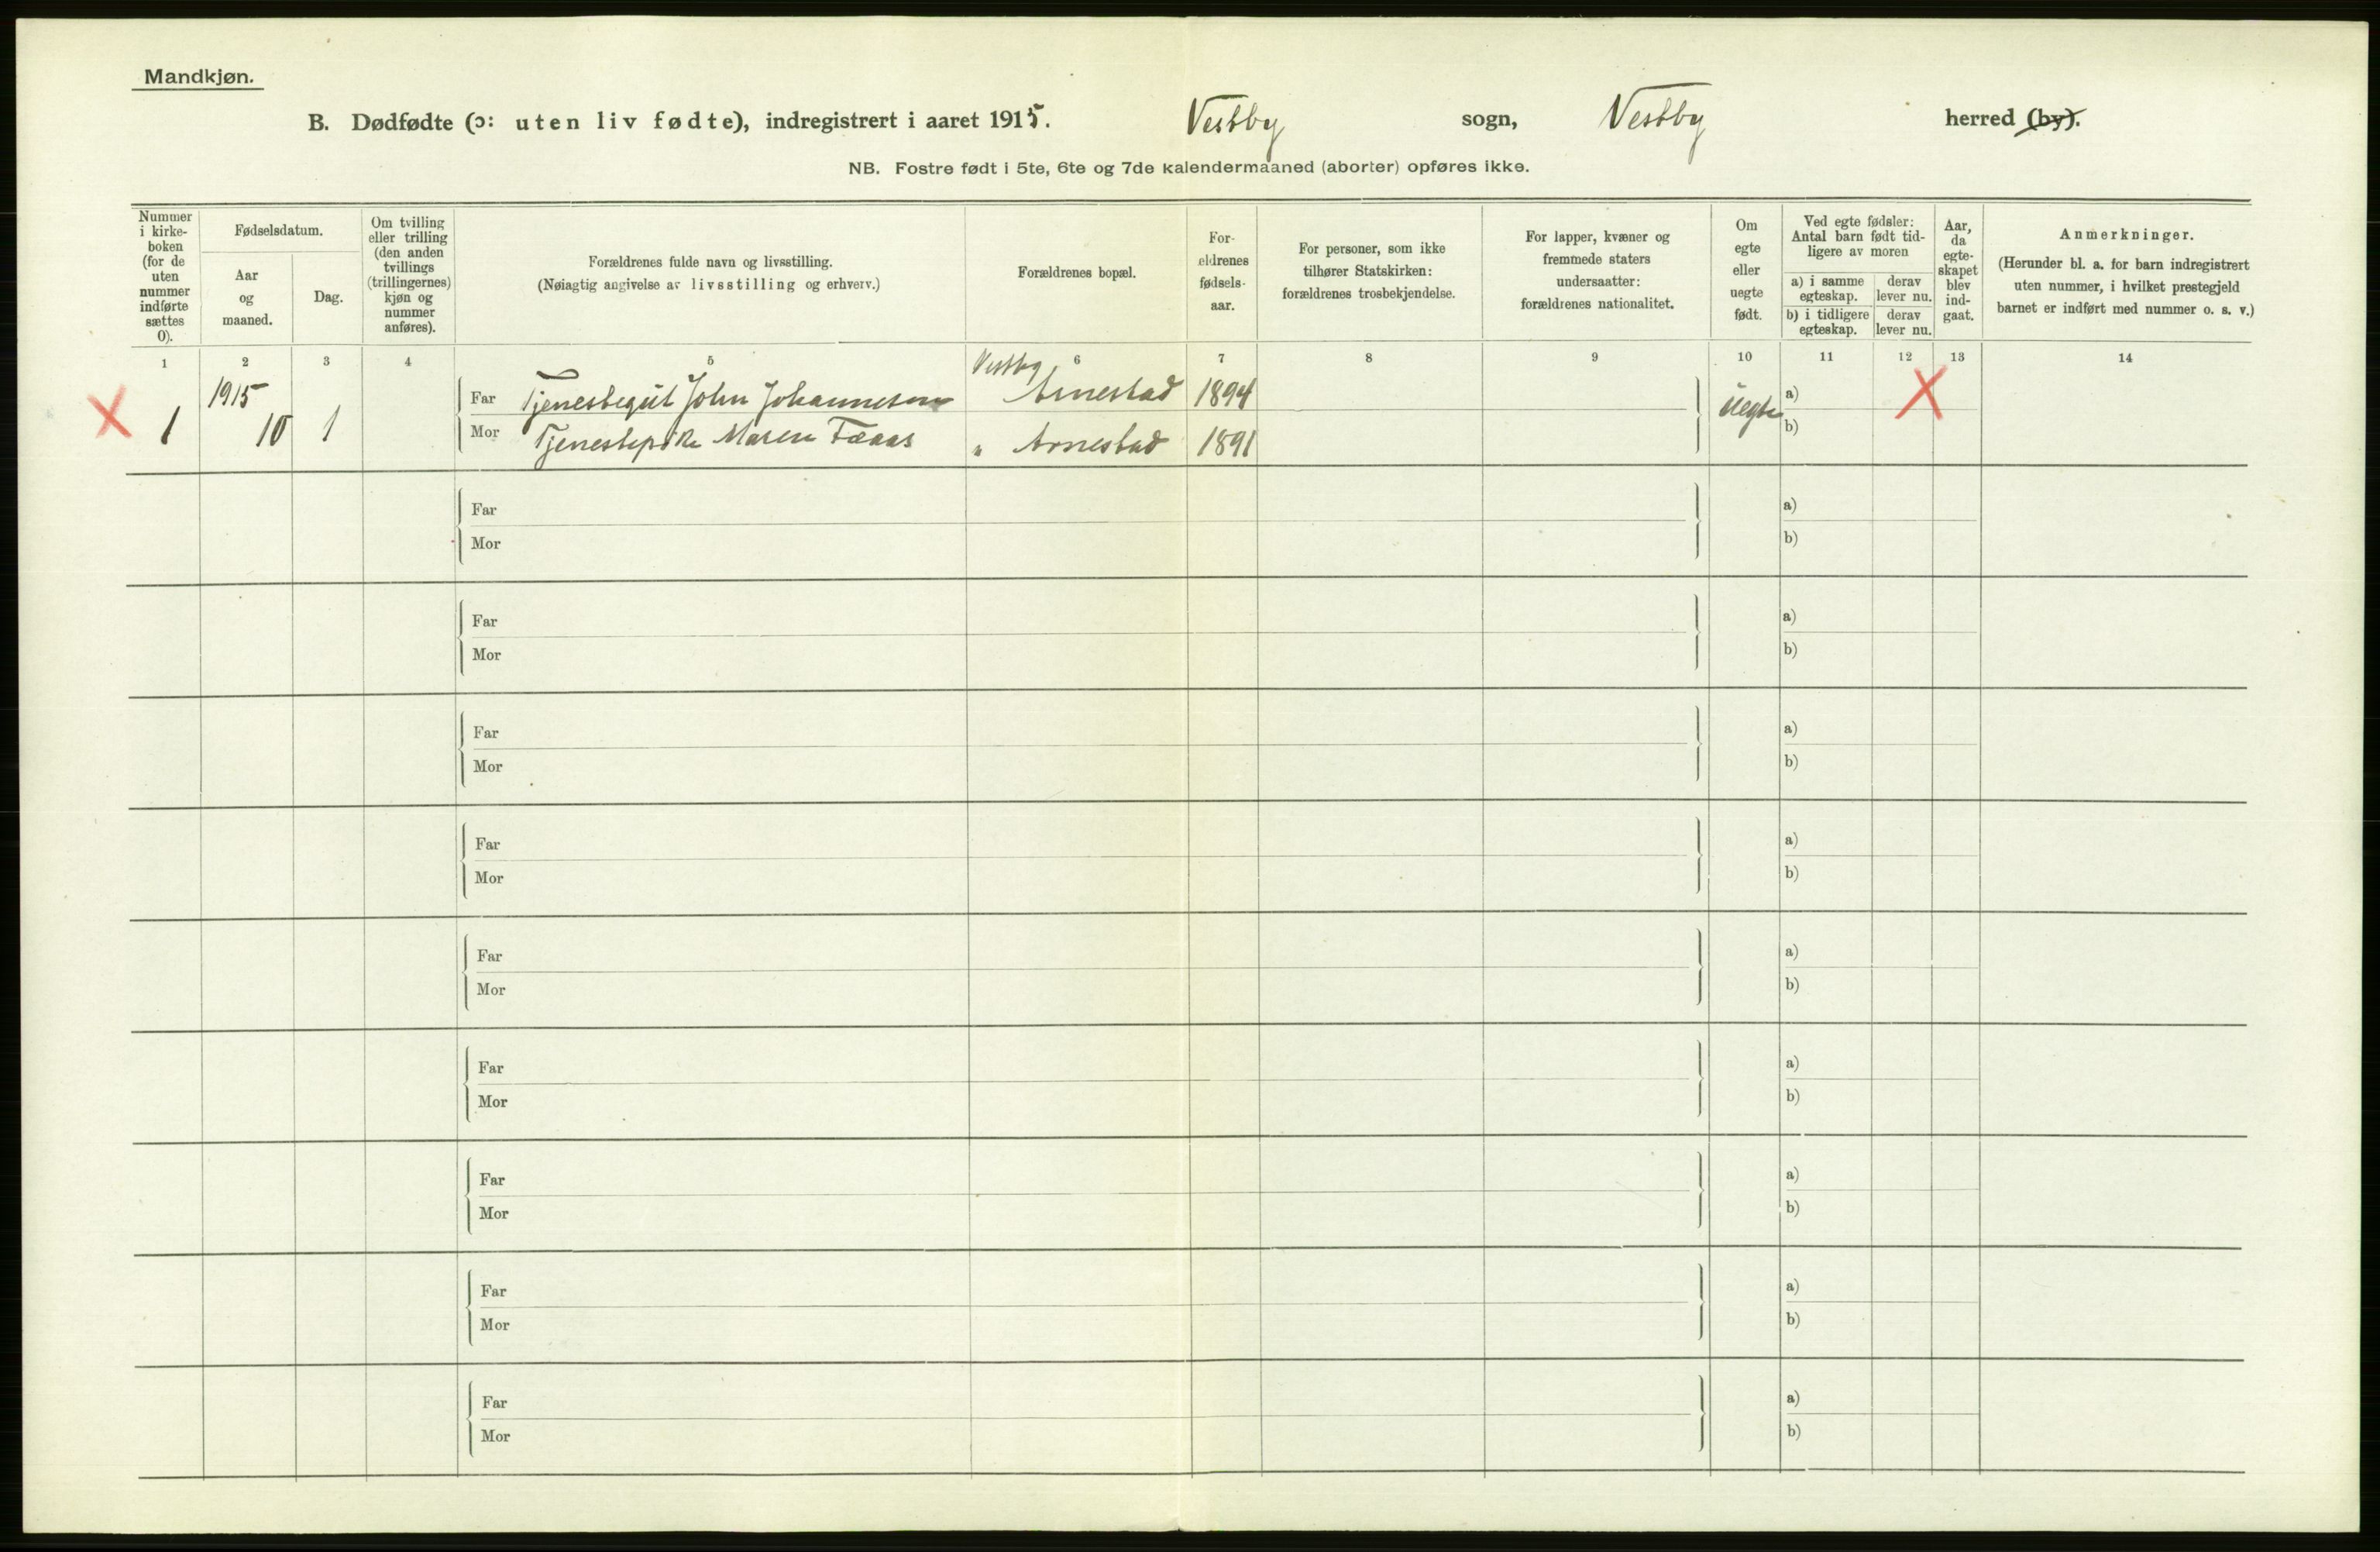 Mandkjøn.
B. Dødfødte (ɔ: uten liv fødte), indregistrert i aaret 1915. Vestby sogn, Vestby herred (by).
NB. Fostre født i 5te, 6te og 7de kalendermaaned (aborter) opføres ikke.
Nummer i kirke-boken (for de uten nummer indførte sættes 0).
Fødselsdatum.
Aar og maaned.
Dag.
Om tvilling eller trilling (den anden tvillings (trillingernes) kjøn og nummer anføres).
Forældrenes fulde navn og livsstilling.
(Nøiagtig angivelse av livsstilling og erhverv.)
Forældrenes bopæl.
For-eldrenes fødsels-aar.
For personer, som ikke tilhører Statskirken: forældrenes trosbekjendelse.
For lapper, kvæner og fremmede staters undersaatter: forældrenes nationalitet.
Om egte eller uegte født.
Ved egte fødsler: Antal barn født tid-ligere av moren
a) i samme egteskap.
derav lever nu.
b) i tidligere egteskap.
derav lever nu.
Aar, da egte-skapet blev ind-gaat.
Anmerkninger.
(Herunder bl. a. for barn indregistrert uten nummer, i hvilket prestegjeld barnet er indført med nummer o. s. v.)
1 2 3 4 5 6 7 8 9 10 11 12 13 14
1915 Vestby
1 10 1 Far Tjenestegut John Johannesen Arnestad 1894 Uegte a)
Mor Tjenestepike Maren " Arnestad 1891 b)
Far a)
Mor b)
Far a)
Mor b)
Far a)
Mor b)
Far a)
Mor b)
Far a)
Mor b)
Far a)
Mor b)
Far a)
Mor b)
Far a)
Mor b)
Far a)
Mor b)